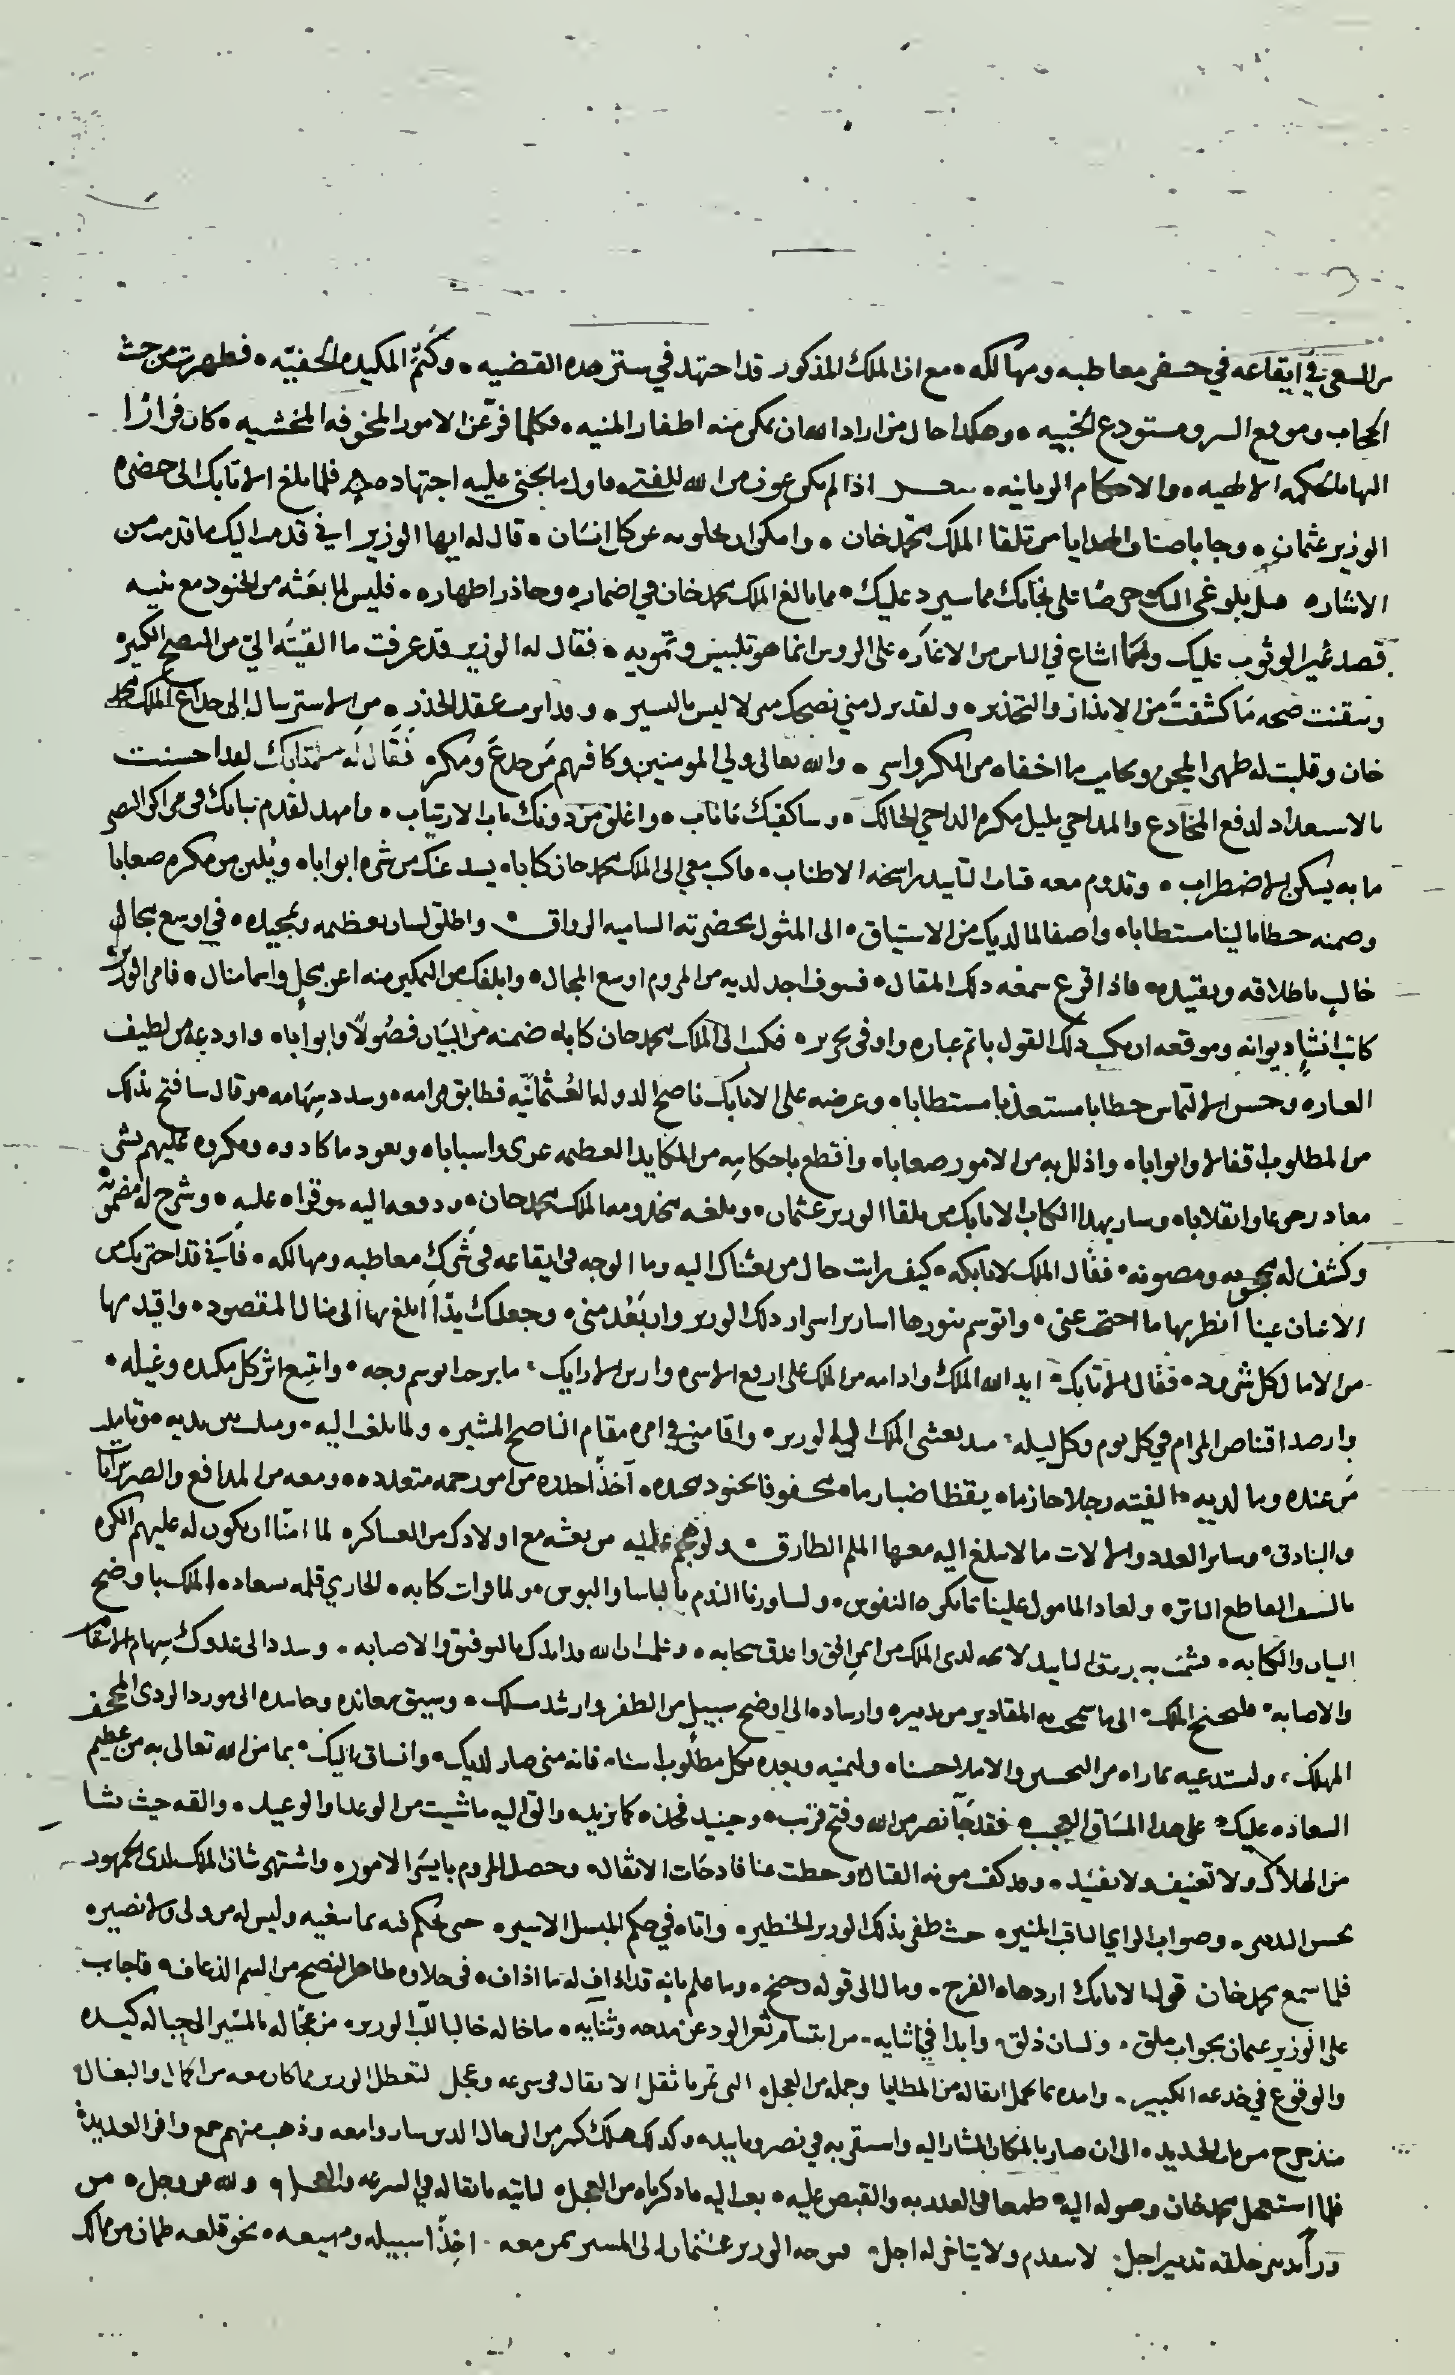 من السعي في ايقاعه في حفر معاطبه ومهالكه مع ان الملك المذكور قد اجتهد في ستر هذه القضيه وكتم المكيده الخفيّه فظهرت من حيث
الحجاب وموضع السر ومستودع الخبيه وهكذا حال من اراد الله ان يمكن منه اظفار المنيه فكلما فرّ عن الامور المخوفه المخشيه كان فرارًا
اليها بالحكمه الالهيه والاحكام الربانيه شعر اذا لم يكن عون من الله للفتى فاول ما يجني عليه اجتهاده فلما بلغ الاتابك الى حضره
الوزير عثمان وجا باصناف الهدايا من تلقا الملك محمد خان وامكن ان يخلو به عن كل انسان قال له ايها الوزير اني قدمت اليك ما قدمت من
الاشاره قبل بلوغي اليك حرصًا على نجاتك مما سيرد عليك مما بالغ الملك محمد خان في اضماره وحاذر اظهاره فليس لما بعثه من الجنود مع بنيه
قصد غير الوثوب عليك وانما اشاع في الناس من الاغاره على الروس انما هو تلبيس وتمويه فقال له الوزير قد عرفت ما القيته اليّ من النصح الكبير
وتيقنت صحه ما كشفت من الانذار والتحذير ولقد بذل مني نصحك من لا ليس باليسير وقد ابرمت عقد الحذر من الاسترسال الى خداع الملك محمد
خان وقلبت له ظهر المجن وجانب ما اخفاه من المكر واسر والله تعالى ولي المومنين وكافيهم من خدع ومكر فقال له الاتابك لقد احسنت
بالاستعداد لدفع المخادع والمداجي بليل مكره الداجي الحالك وساكفيك ما ناب واغلق من دونك باب الارتياب وامهد لقدم ثباتك في مراكز النصر
ما به يسكن الاضطراب وتدوم معه قباب التاييد راسخه الاطناب فاكتب معي الى الملك محمد خان كتابا يسد عنك من شره ابوابا ويلين من مكره صعابا
وضمنه خطابا لينا مستطابا واصفا لما لديك من الاشتياق الى المثول بحضرته الساميه الرواق واطلق لسان تعظيمه وتمجيده في اوسع مجال
خالب باطلاقه وتقييده فاذا قرع سمعه ذلك المقال فسوف اجد لديه من المروم اوسع المجال وابلغك من التمكين منه اعز محل واسما منال فامر الوزير
كاتب انشا ديوانه وموقعه ان يكتب ذلك القول باتم عباره واوفى تحرير فكتب الى الملك محمد خان كتابا ضمنه من البيان فصولًا وابوابا واودعه من لطيف
العباره وحسن الالتماس خطابا مستعذبا مستطابا وعرضه على الاتابك ناصح الدوله العثمانيّه فطابق مرامه وسدد سهامه وقال سافتح بذلك
من المطلوب اقفالا وابوابا واذلل به من الامور صعابا واقطع باحكامه من المكايد العظيمه عرى واسبابا ويعود ما كادوه ومكروه عليهم بشي
معاد رجوعا وانقلابا وسار بهذا الكتاب الاتابك من تلقا الوزير عثمان وبلغه مخدومه الملك محمد خان ودفعه اليه وقراه عليه وشرح له مضمونه
وكشف له محجوبه ومصونه فقال الملك لاتابكه كيف رايت حال من بعثناك اليه وما الوجه في ايقاعه في شرك معاطبه ومهالكه فاني قد اخترتك من
الاعيان عينا انظر بها ما احتجب عني واتوسم بنورها اسارير اسرار ذلك الوزير وان بَعُد مني وجعلتك يدًا ابلغ بها الى منال المقصود واقيد بها
من الامال كل شرود فقال الاتابك ايد الله الملك وادامه من الملك على ارفع الاسره وازين الارايك ما برحت اتوسم وجه واتبع اثر كل مكيده وغيله
وارصد اقتناص المرام في كل يوم وكل ليله منذ بعثني الملك الى الوزير واقامني في امره مقام الناصح المشير ولما بلغت اليه ومثلت بين يديه وتاملت
من عنده وما لديه الفيته رجلا حازما يقظا ضبارما محفوفا بجنود مجنده آخذًا حذره من امور جمه متعدده ومعه من المدافع والضربزانات
والبنادق وساير العدد والالات ما لا يبلغ اليه معها الملم الطارق ولو هجم عليه من بعثه مع اولادك من العساكر لما امنّا ان يكون له عليهم الكره
بالسيف القاطع الباتر ولعاد المامول علينا بما تكره النفوس ولساورنا الندم بالباسا والبوس ولما قرات كتابه الحاوي قلمه سعاده الملك باوضح
البيان والكتابه شمت به بريق التاييد لايحه لدى الملك من افق الحق واغدق سحابه وعلمت ان الله قد ايدك بالتوفيق والاصابه وسدد الى عدوك سهام الانتقام
والاصابه فليجنح الملك الى ما سمحت به المقادير من تدبيره وارشاده الى اوضح سبيل من الظفر وارشد مسلك وسيق معانده وحاسده الى مورد الردى المجحف
المهلك وليستدعيه بما راه من التحسين والامل احسنا وليمنيه ويعده بكل مطلوب اسنا فانه متى صار لديك وانساق اليك بما من الله تعالى به من عظيم
السعاده عليك على هذا المساق العجيب فقد جآ نصر من الله وفتح قريب وحينئذ فخذه كما تريد والق اليه ما شيت من الوعد او الوعيد والقه حيث تشا
من الهلاك ولا تعنيف ولا تفنيد وقد كفيت مونه القتال وحطت عنا فادحات الاثقال وحصل المروم بايسر الامور واشتهر شان الملك لدى الجمهور
بحسن التدبير وصواب الراي الثاقب المنير حيث ظفر بذلك الوزير الخطير واتاه في حكم المبسل الاسير حتى تحكم فيه بما تبغيه وليس له من ولي ولا نصير
فلما سمع محمد خان قول الاتابك ازدهاه الفرح ومال الى قوله وجنح وما علم بانه قد اذاف له ما اذاف في حلاوه ظاهر النصح من السم الذعاف فاجاب
على الوزير عثمان بجواب ملق ولسان ذلق وابدا في اثنايه من ابتسام ثغر الود عن مدحه وثنايه ما خاله خالبا للبّ الوزير من عجاله بالمسير الى حباله كيده
والوقوع في خدعه الكبير وامده بما يحمل اثقاله من المطايا وجمله من العجل التي تمر بما ثقل الاثقال في سرعه وعجل لتعطل الوزير مما كان معه من الجمال والبغال
منذ خرج من باب الحديد الى ان صار بالمكان المشار اليه واستقر به في نصر وتاييد وكذلك هلك كثير من الرجال الذين ساروا معه وذهب منهم جمع وافر العديد
فلما استعجل محمد خان وصوله اليه طمعا في الغدر به والقبض عليه بعث اليه ما ذكرناه من العجل لتاتيه باثقاله في السرعه والعجل ولله عز وجل من
ورآ تدبير خلقه تدبير اجل لا يتقدم ولا يتاخر له اجل فتوجه الوزير عثمان الى المسير بمن معه اخذًا سبيله ومهيعه نحو قلعه طمان من ممالك